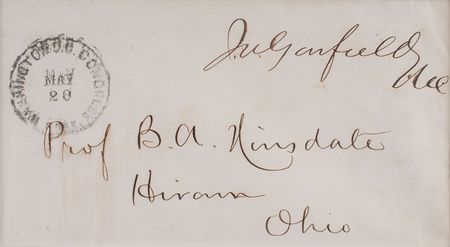 WASHINGTON D.C. CONGRESS
MAY
20
J. A. Garfield
M.C.
Prof B. A. Hinsdale
Hiram
Ohio